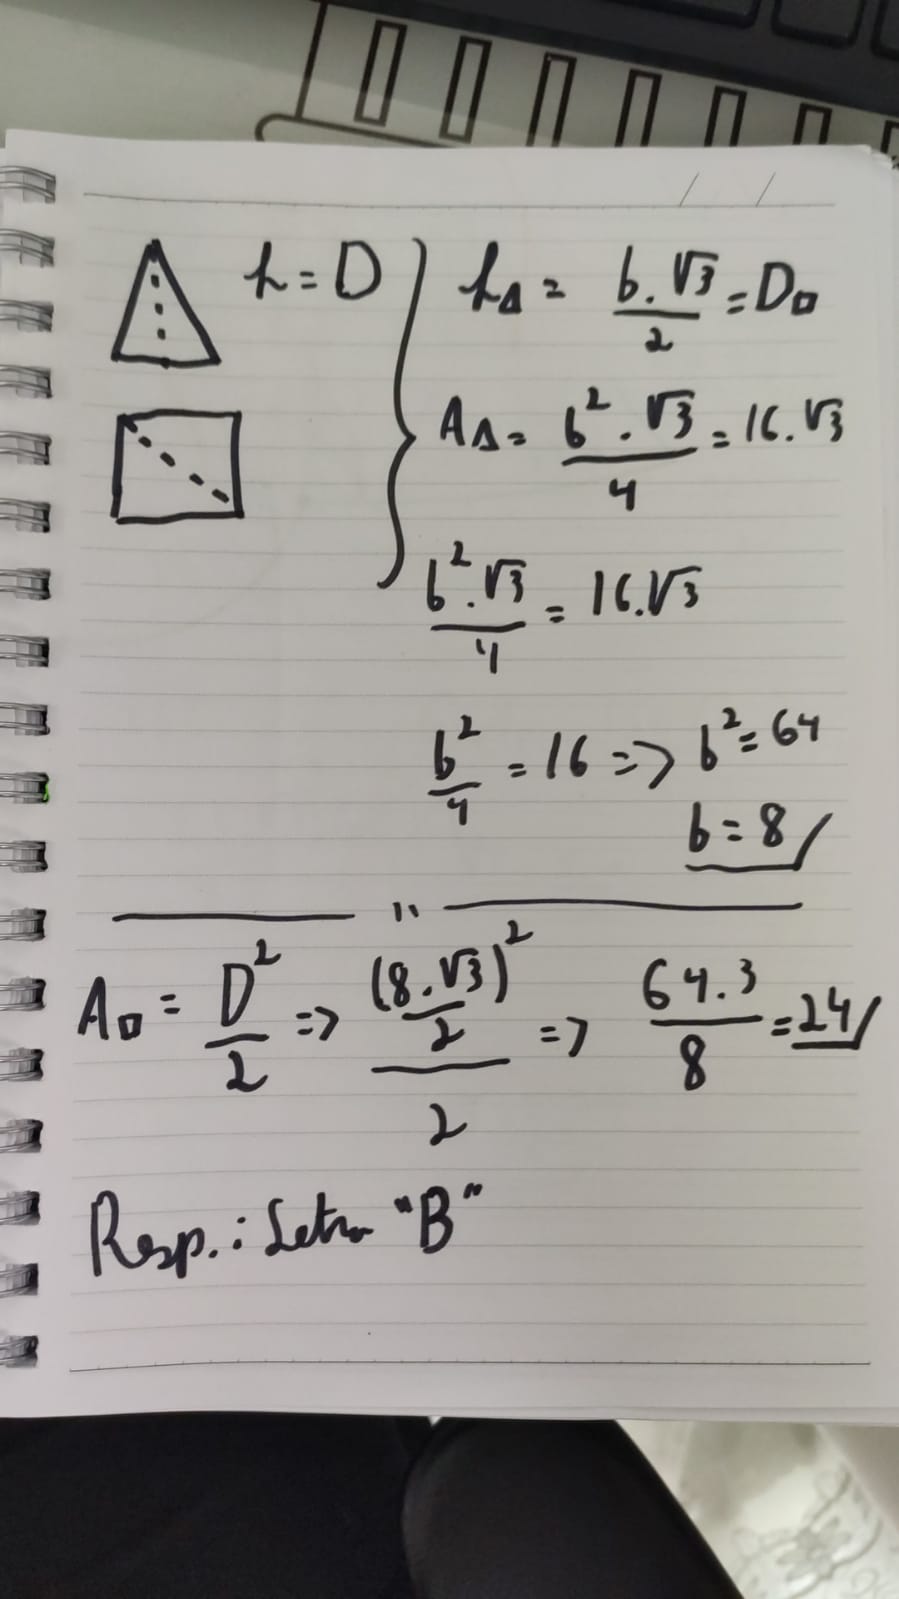 h = D
h△ = b.√3/2 = D□
A△ = b².√3/4 = 16.√3
b².√3/4 = 16.√3
b²/4 = 16 => b² = 64
b = 8
A□ = D²/2 => (8.√3/2)²/2 => 64.3/8 = 24
Resp.: Letra "B"